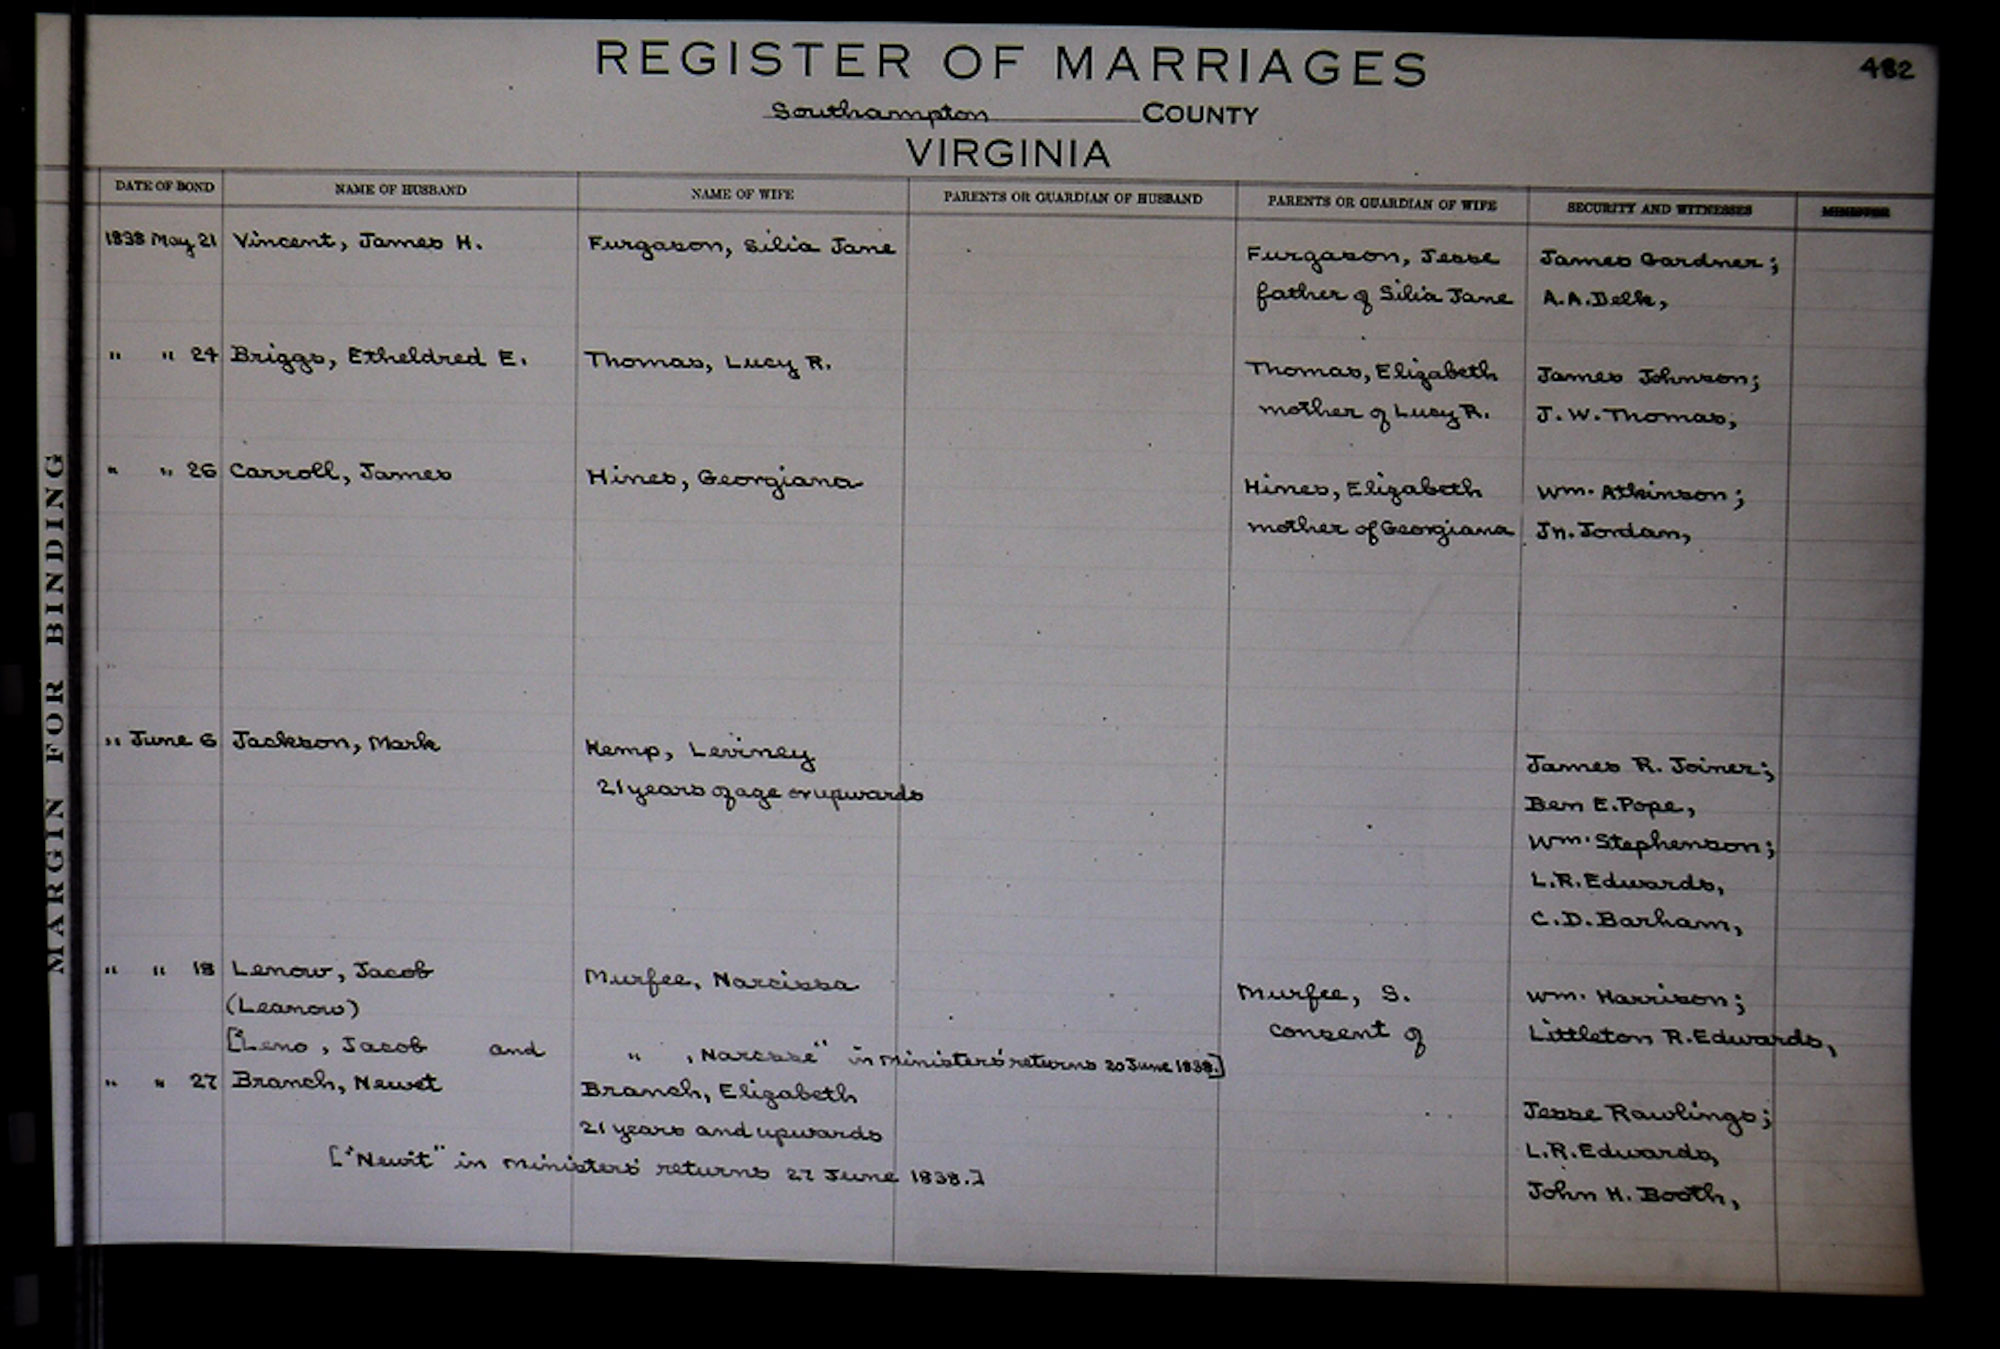 482
REGISTER OF MARRIAGES
Southampton COUNTY
VIRGINIA
MARGIN FOR BINDING
DATE OF BOND NAME OF HUSBAND NAME OF WIFE PARENTS OR GUARDIAN OF HUSBAND PARENTS OR GUARDIAN OF WIFE SECURITY AND WITNESSES MINISTER
1838 May 21 Vincent, James H. Furgason, Silia Jane Furgason, Jesse James Gardner;
father of Silia Jane A.A. Delk,
" " 24 Briggs, Etheldred E. Thomas, Lucy R. Thomas, Elizabeth James Johnson;
mother of Lucy R. J. W. Thomas,
" " 26 Carroll, James Hines, Georgiana Hines, Elizabeth Wm. Atkinson;
mother of Georgiana Jn. Jordan,
" June 6 Jackson, Mark Kemp, Leviney James R. Joiner;
21 years of age or upwards Ben E. Pope,
Wm. Stephenson;
L.R. Edwards,
C.D. Barham,
" " 18 Lenow, Jacob Murfee, Narcissa Murfee, S. Wm. Harrison;
(Leanow) consent of Littleton R. Edwards,
["Leno, Jacob and " , Narcsse" in Ministers' returns 20 June 1838.]
" " 27 Branch, Newet Branch, Elizabeth Jesse Rawlings;
21 years and upwards L.R. Edwards,
["Newit" in Ministers' returns 27 June 1838.] John H. Booth,